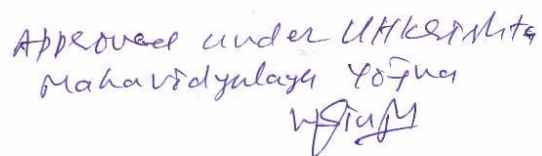 Approved under Utkrishta
Mahavidyalaya Yojna